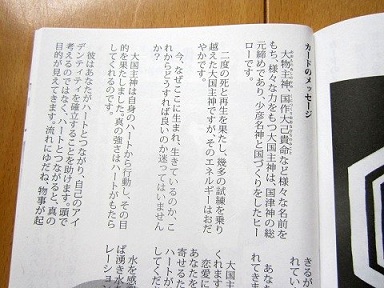 カードのメッセージ
大物主神、国作大己貴命など様々な名前を
もち、様々な力をもつ大国主神は、国津神の総
元締めであり、少彦名神と国づくりをしたヒー
ローです。
二度の死と再生を果たし、幾多の試練を乗り
越えた大国主神ですが、そのエネルギーはおだ
やかです。
今、なぜここに生まれ、生きているのか、こ
れからどうすれば良いのか迷ってはいません
か？
大国主神は自身のハートから行動し、その目
的を果たしました。真の強さはハートがもたら
してくれるのです。
彼はあなたがハートとつながり、自己のアイ
デンティティを確立することを助けます。頭で
考えるのではなく、ハートとつながると、真の
目的が見えてきます。流れにゆだね、物事が起
きるが
れてい
あなた
れてきま
大国主
くれます
恋愛に
あなたを
寄せるた
ハートが
してくだ
水を感
ば湧き水
レーショ